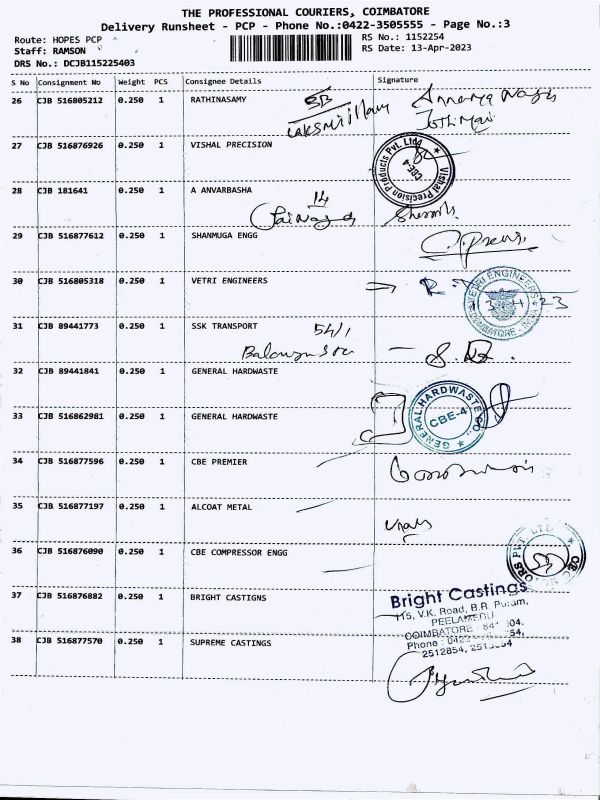 THE PROFESSIONAL COURIERS, COIMBATORE
Delivery Runsheet - PCP - Phone No.:0422-3505555 - Page No.:3
Route: HOPES PCP
RS No.: 1152254
Staff: RAMSON
RS Date: 13-Apr-2023
DRS No.: DCJB115225403
S No Consignment No Weight PCS Consignee Details Signature
26 CJB 516805212 0.250 1 RATHINASAMY
27 CJB 516876926 0.250 1 VISHAL PRECISION
Vishal Precision Products Pvt. Ltd.
CBE-4
28 CJB 181641 0.250 1 A ANVARBASHA
14
29 CJB 516877612 0.250 1 SHANMUGA ENGG
30 CJB 516805318 0.250 1 VETRI ENGINEERS
VETRI ENGINEERS
COIMBATORE
13.4.23
31 CJB 89441773 0.250 1 SSK TRANSPORT
54/1
32 CJB 89441841 0.250 1 GENERAL HARDWASTE
33 CJB 516862981 0.250 1 GENERAL HARDWASTE
GENERAL HARDWASTE CO.,
CBE-4
34 CJB 516877596 0.250 1 CBE PREMIER
35 CJB 516877197 0.250 1 ALCOAT METAL
36 CJB 516876090 0.250 1 CBE COMPRESSOR ENGG
PVT. LTD
37 CJB 516876882 0.250 1 BRIGHT CASTIGNS
Bright Castings
115, V.K. Road, B.R. Puram,
PEELAMEDU
COIMBATORE - 641 004.
Phone : 0422
2512854,
38 CJB 516877570 0.250 1 SUPREME CASTINGS